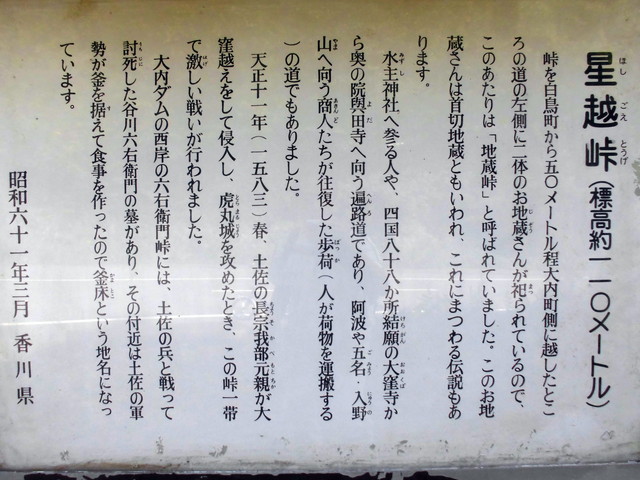 星越峠（標高約一一〇メートル）
峠を白鳥町から五〇メートル程大内町側に越したとこ
ろの道の左側に二体のお地蔵さんが祀られているので、
このあたりは「地蔵峠」と呼ばれていました。このお地
蔵さんは首切地蔵ともいわれ、これにまつわる伝説もあ
ります。
水主神社へ参る人や、四国八十八か所結願の大窪寺か
ら奥の院與田寺へ向う遍路道であり、阿波や五名・入野
山へ向う商人たちが往復した歩荷（人が荷物を運搬する
）の道でもありました。
天正十一年（一五八三）春、土佐の長宗我部元親が大
窪越えをして侵入し、虎丸城を攻めたとき、この峠一帯
で激しい戦いが行われました。
大内ダムの西岸の六右衛門峠には、土佐の兵と戦って
討死した谷川六右衛門の墓があり、その付近は土佐の軍
勢が釜を据えて食事を作ったので釜床という地名になっ
ています。
昭和六十一年三月 香川県